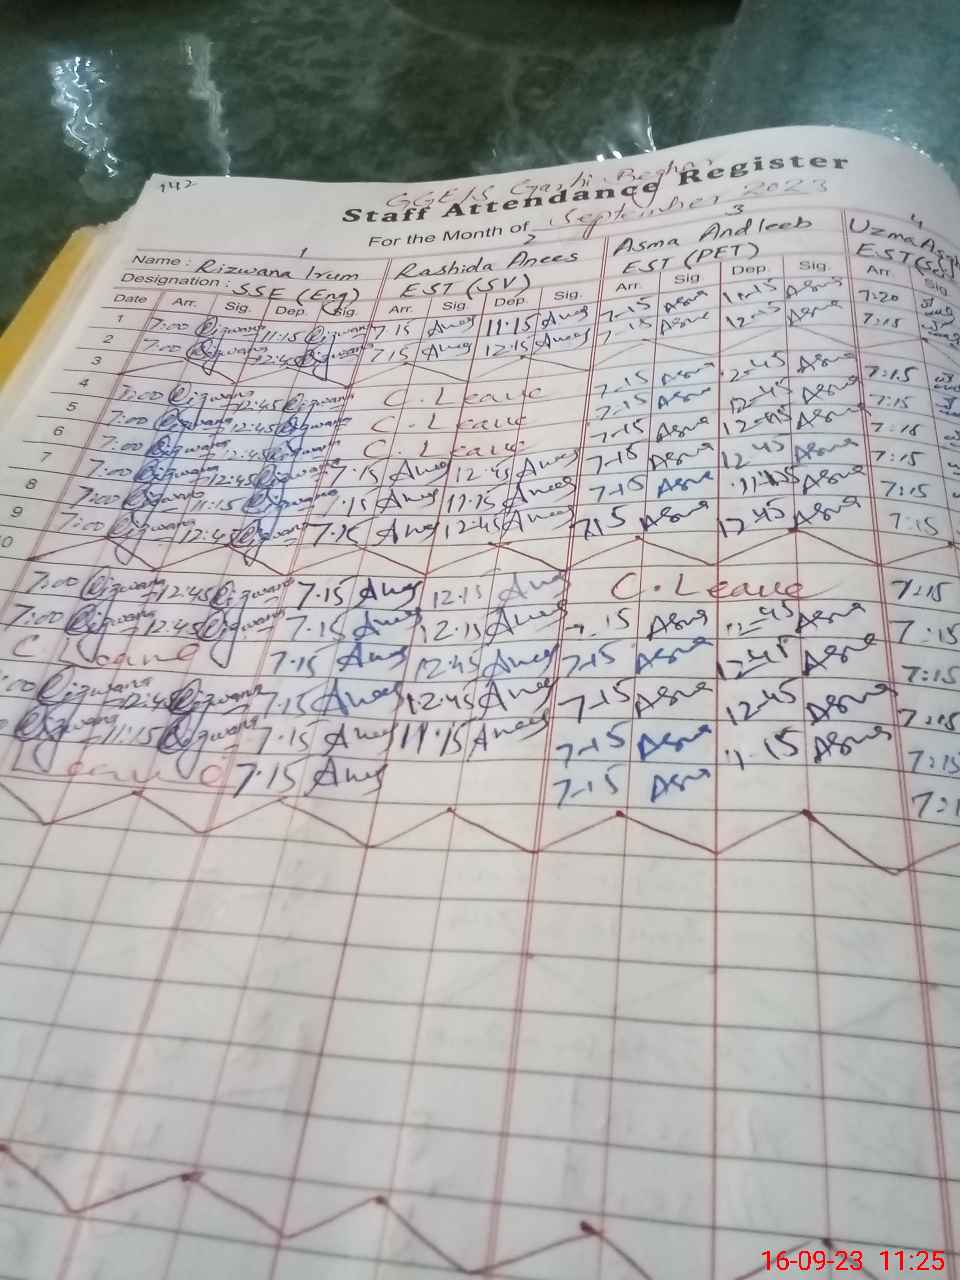 142
GGE/S Garhi Beghar
Staff Attendance Register
For the Month of September 2023
1 2 3 4
Name : Rizwana Irum Rashida Anees Asma Andleeb Uzma
Designation : SSE (Eng) EST (SV) EST (PET) EST
Date Arr. Sig. Dep. Sig. Arr. Sig. Dep. Sig. Arr. Sig. Dep. Sig. Arr. Sig
1 7:00 Rizwana 11:15 Rizwana 7.15 Anees 11.15 Anees 7-15 Asma 11-15 Asma 7:20
2 7:00 Rizwana 12:45 Rizwana 7.15 Anees 12.15 Anees 7-15 Asma 12-45 Asma 7:15
3
4 7:00 Rizwana 12:45 Rizwana C. Leave 7-15 Asma 12-45 Asma 7:15
5 7:00 Rizwana 12:45 Rizwana C. Leave 7-15 Asma 12-45 Asma 7:15
6 7:00 Rizwana 12:45 Rizwana C. Leave 7-15 Asma 12-45 Asma
7 7:00 Rizwana 12:45 Rizwana 7.15 Anees 12.45 Anees 7-15 Asma 12-45 Asma 7:15
8 7:00 Rizwana 11:15 Rizwana 7.15 Anees 11.15 Anees 7-15 Asma 11-15 Asma 7:15
9 7:00 Rizwana 12:45 Rizwana 7.15 Anees 12.45 Anees 7.15 Asma 12-45 Asma 7:15
10
7:00 Rizwana 12:45 Rizwana 7.15 Anees 12.15 Anees C. Leave 7:15
7:00 Rizwana 12:45 Rizwana 7.15 Anees 12.15 Anees 7-15 Asma 12-45 Asma 7:15
C. Leave 7.15 Anees 12.45 Anees 7-15 Asma 12-45 Asma 7:15
:00 Rizwana 12:45 Rizwana 7.15 Anees 12.45 Anees 7-15 Asma 12-45 Asma 7:15
Rizwana 11:15 Rizwana 7.15 Anees 11.15 Anees 7-15 Asma 11-15 Asma 7:15
Leave C 7.15 Anees 7-15 Asma 7:1
16-09-23 11:25